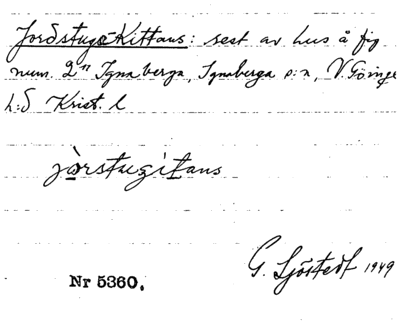 Jordstuge-Kittans: rest av hus å fig
num. 2ⁿ Ignaberga, Ignaberga s:n, V. Göinge
h:d Krist. l
jòrstugitans
G. Sjöstedt 1949
Nr 5360.